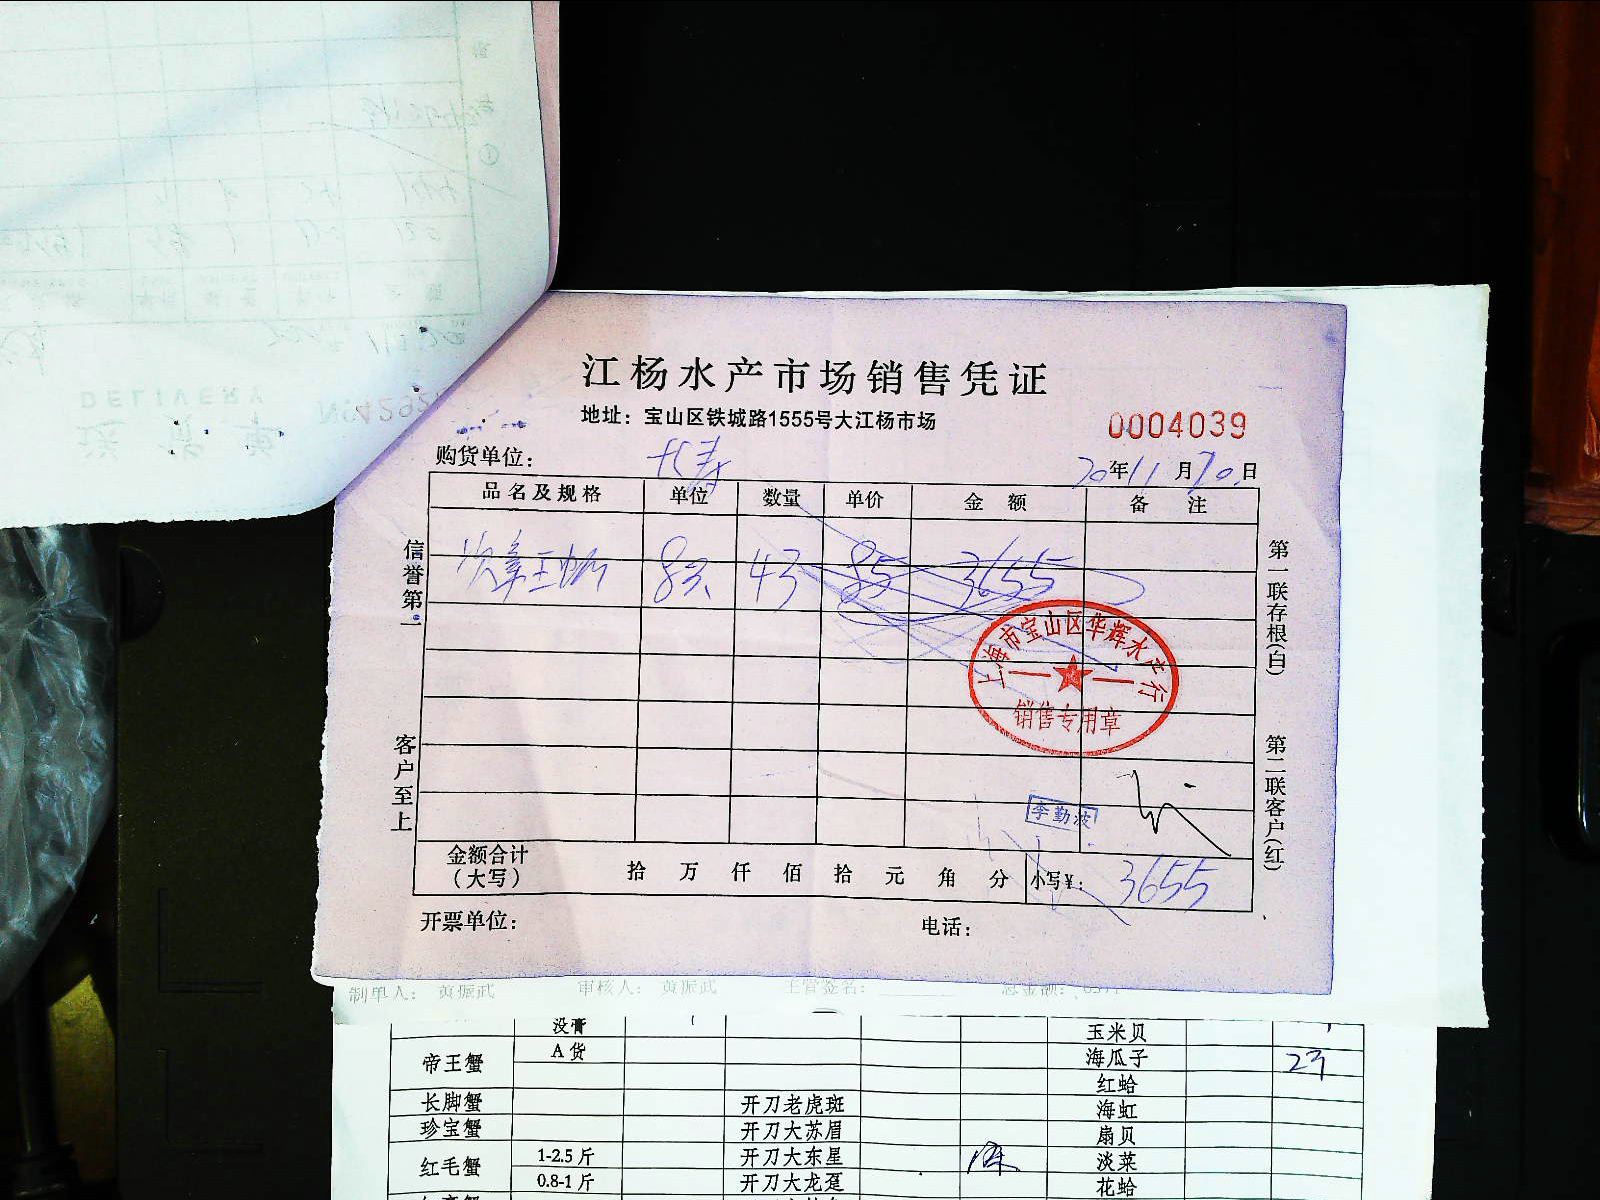 江杨水产市场销售凭证
地址：宝山区铁城路1555号大江杨市场
0004039
购货单位：长寿
20年11月20日
品名及规格 单位 数量 单价 金额 备注
8只 43 85 3655
信誉第一
客户至上
第一联存根(白)
第二联客户(红)
上海市宝山区华辉水产行
销售专用章
李勤波
金额合计
（大写） 拾 万 仟 佰 拾 元 角 分 小写¥： 3655
开票单位： 电话：
制单人： 黄振武 审核人： 黄振武 主管签名： 总金额：
没膏 玉米贝
帝王蟹 A货 海瓜子 23
红蛤
长脚蟹 开刀老虎斑 海虹
珍宝蟹 开刀大苏眉 扇贝
红毛蟹 1-2.5斤 开刀大东星 淡菜
0.8-1斤 开刀大龙趸 花蛤
DELIVERY